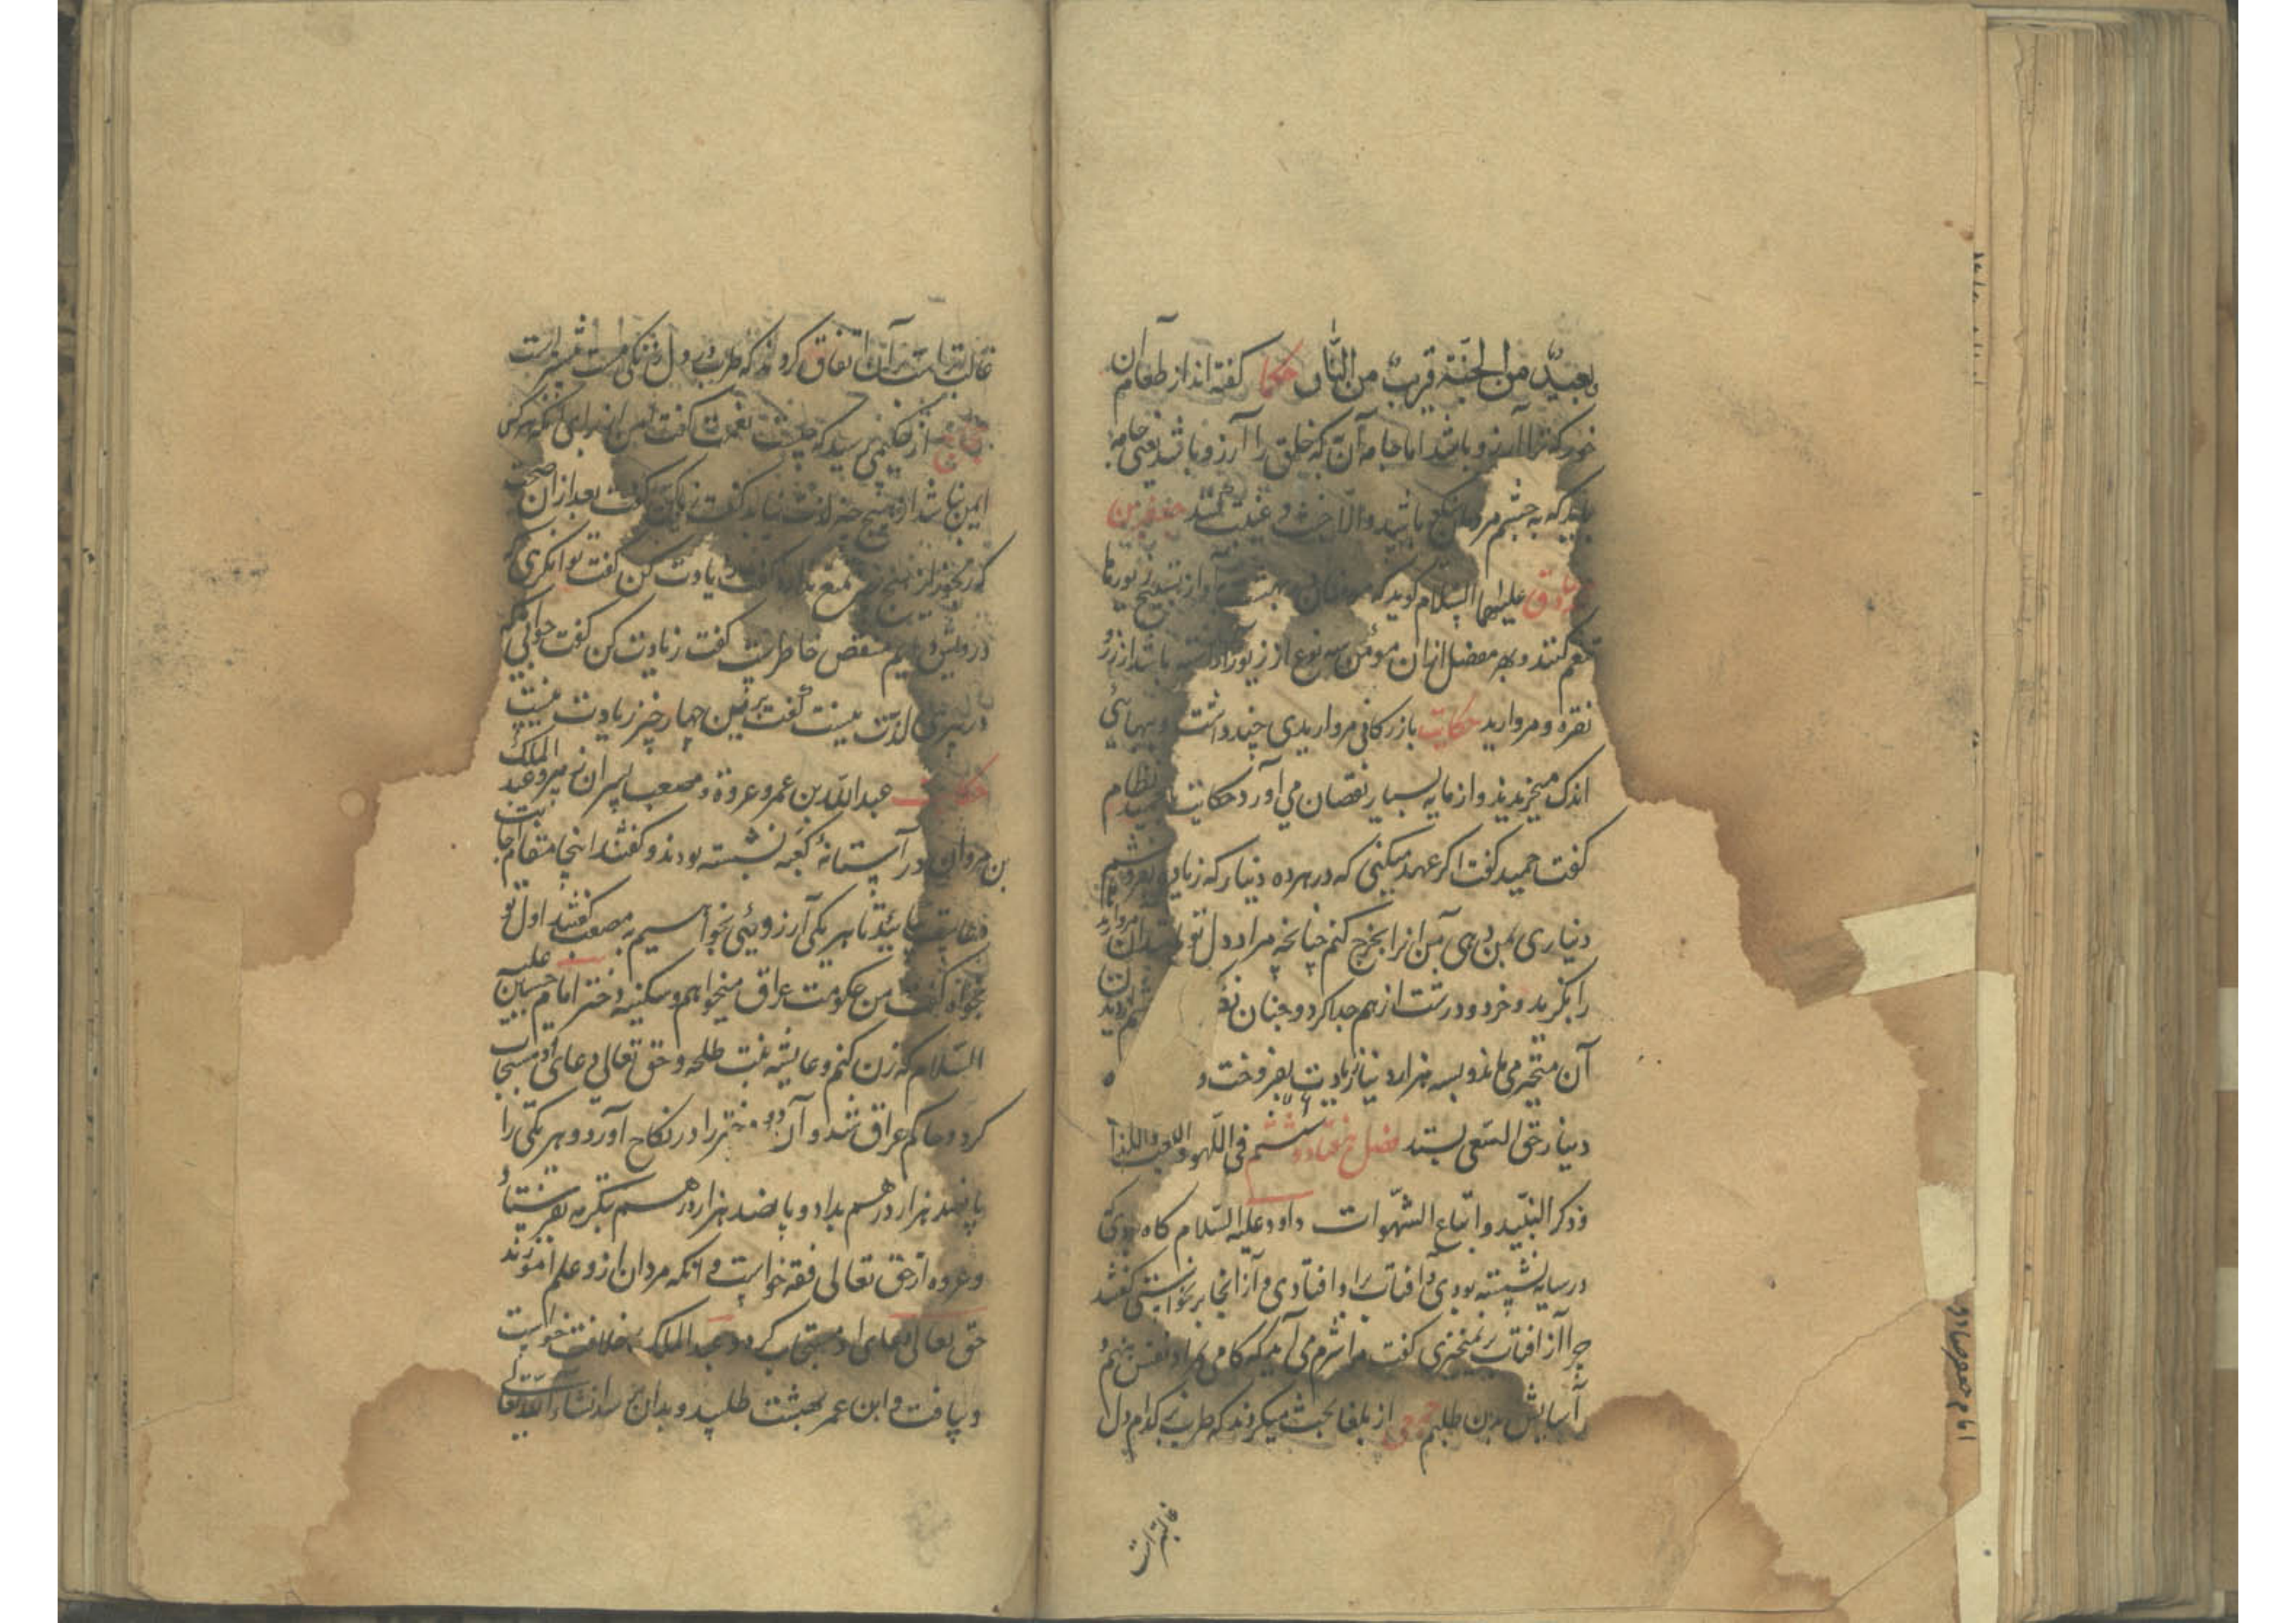 بعیدٌ من الجنّة قریبٌ من النّار حکما گفته‌اند از طعام آن
خور که ترا آرزو باشد اما جامه آن که خلق را آرزو باشد یعنی جامه
باید که به چشم مردمان باشید والّا خبث و غیبت کنند جعفر بن
صادق علیهما السّلام گوید که بهشت آواز تسبیح زیور
کنند و بهر مفصل ازان مؤمن سه نوع از زیور باشد از زر و
نقره و مروارید حکایت بازرگانی مرواریدی چند داشت و ببهائی
اندک میخریدند و از مایه بسیار نقصان می‌آورد حکایت نظام
گفت حمید گفت اگر عهد میکنی که در هر ده دینار که زیاده بفروشم
دیناری بمن دهی من آنرا بخرج کنم چنانچه مراد دل تو مروارید
را بگزید و خرد و درشت از هم جدا کرد و چنان
آن متحیر می‌ماند و بسه هزار دینار زیادت بفروخت و
دینار حق السّعی بستد فصل هفتاد و ششم فی اللّهو واللعب واللذا
وذکر النّبید واتّباع الشّهوات داود علیه السّلام گاه بودی که
در سایه نشسته بودی و آفتاب براو افتادی و از آنجا برنخواستی گفتند
چرا از آفتاب برنمیخیزی گفت مرا شرم می‌آید که گامی بمراد نفس نهم و
آسایش بدن طلبم جمعی از بلغا بحث میکردند که طرب بر کدام دل
غالبتر است
امام جعفر صادق
غالبتر است بر آن اتفاق کردند که طرب در دل زنگی مست بیشتر است
حجاج از حکیمی پرسید که چیست نعمت گفت ایمن از برای آنکه هر کس
ایمن نباشد از هیچ چیز لذت نیابد گفت زیادت کن گفت بعد از آن صحت
که رنجور از هیچ تمتع ندارد گفت زیادت کن گفت توانگری که
درویش دایم منغص خاطرست گفت زیادت کن گفت جوانی که
در پیری لذّت نیست گفت برین چهار چیز زیادت نیست
حکایت عبدالله بن عمر و عروة و مصعب پسران زبیر و عبد الملک
بن مروان در آستانهٔ کعبه نشسته بودند و گفتند اینجا مقام اجابت
بیائید تا هر یکی آرزوئی بخواهیم به مصعب گفتند اول تو
بخواه گفت من حکومت عراق میخواهم و سکینه دختر امام حسین علیه
السّلام که زن کنم و عایشه بنت طلحه و حق تعالی دعای او مستجاب
کرد و حاکم عراق شد و آن دو دختر را در نکاح آورد و هر یکی را
پانصد هزار درهم بداد و پانصد هزار درهم دیگر به
و عروه از حق تعالی فقه خواست و آنکه مردان ازو علم آموزند
حق تعالی دعای او مستجاب کرد و عبدالملک خلافت خواست
و بیافت و ابن عمر بهشت طلبید و بدان رسد انشاء الله تعالی